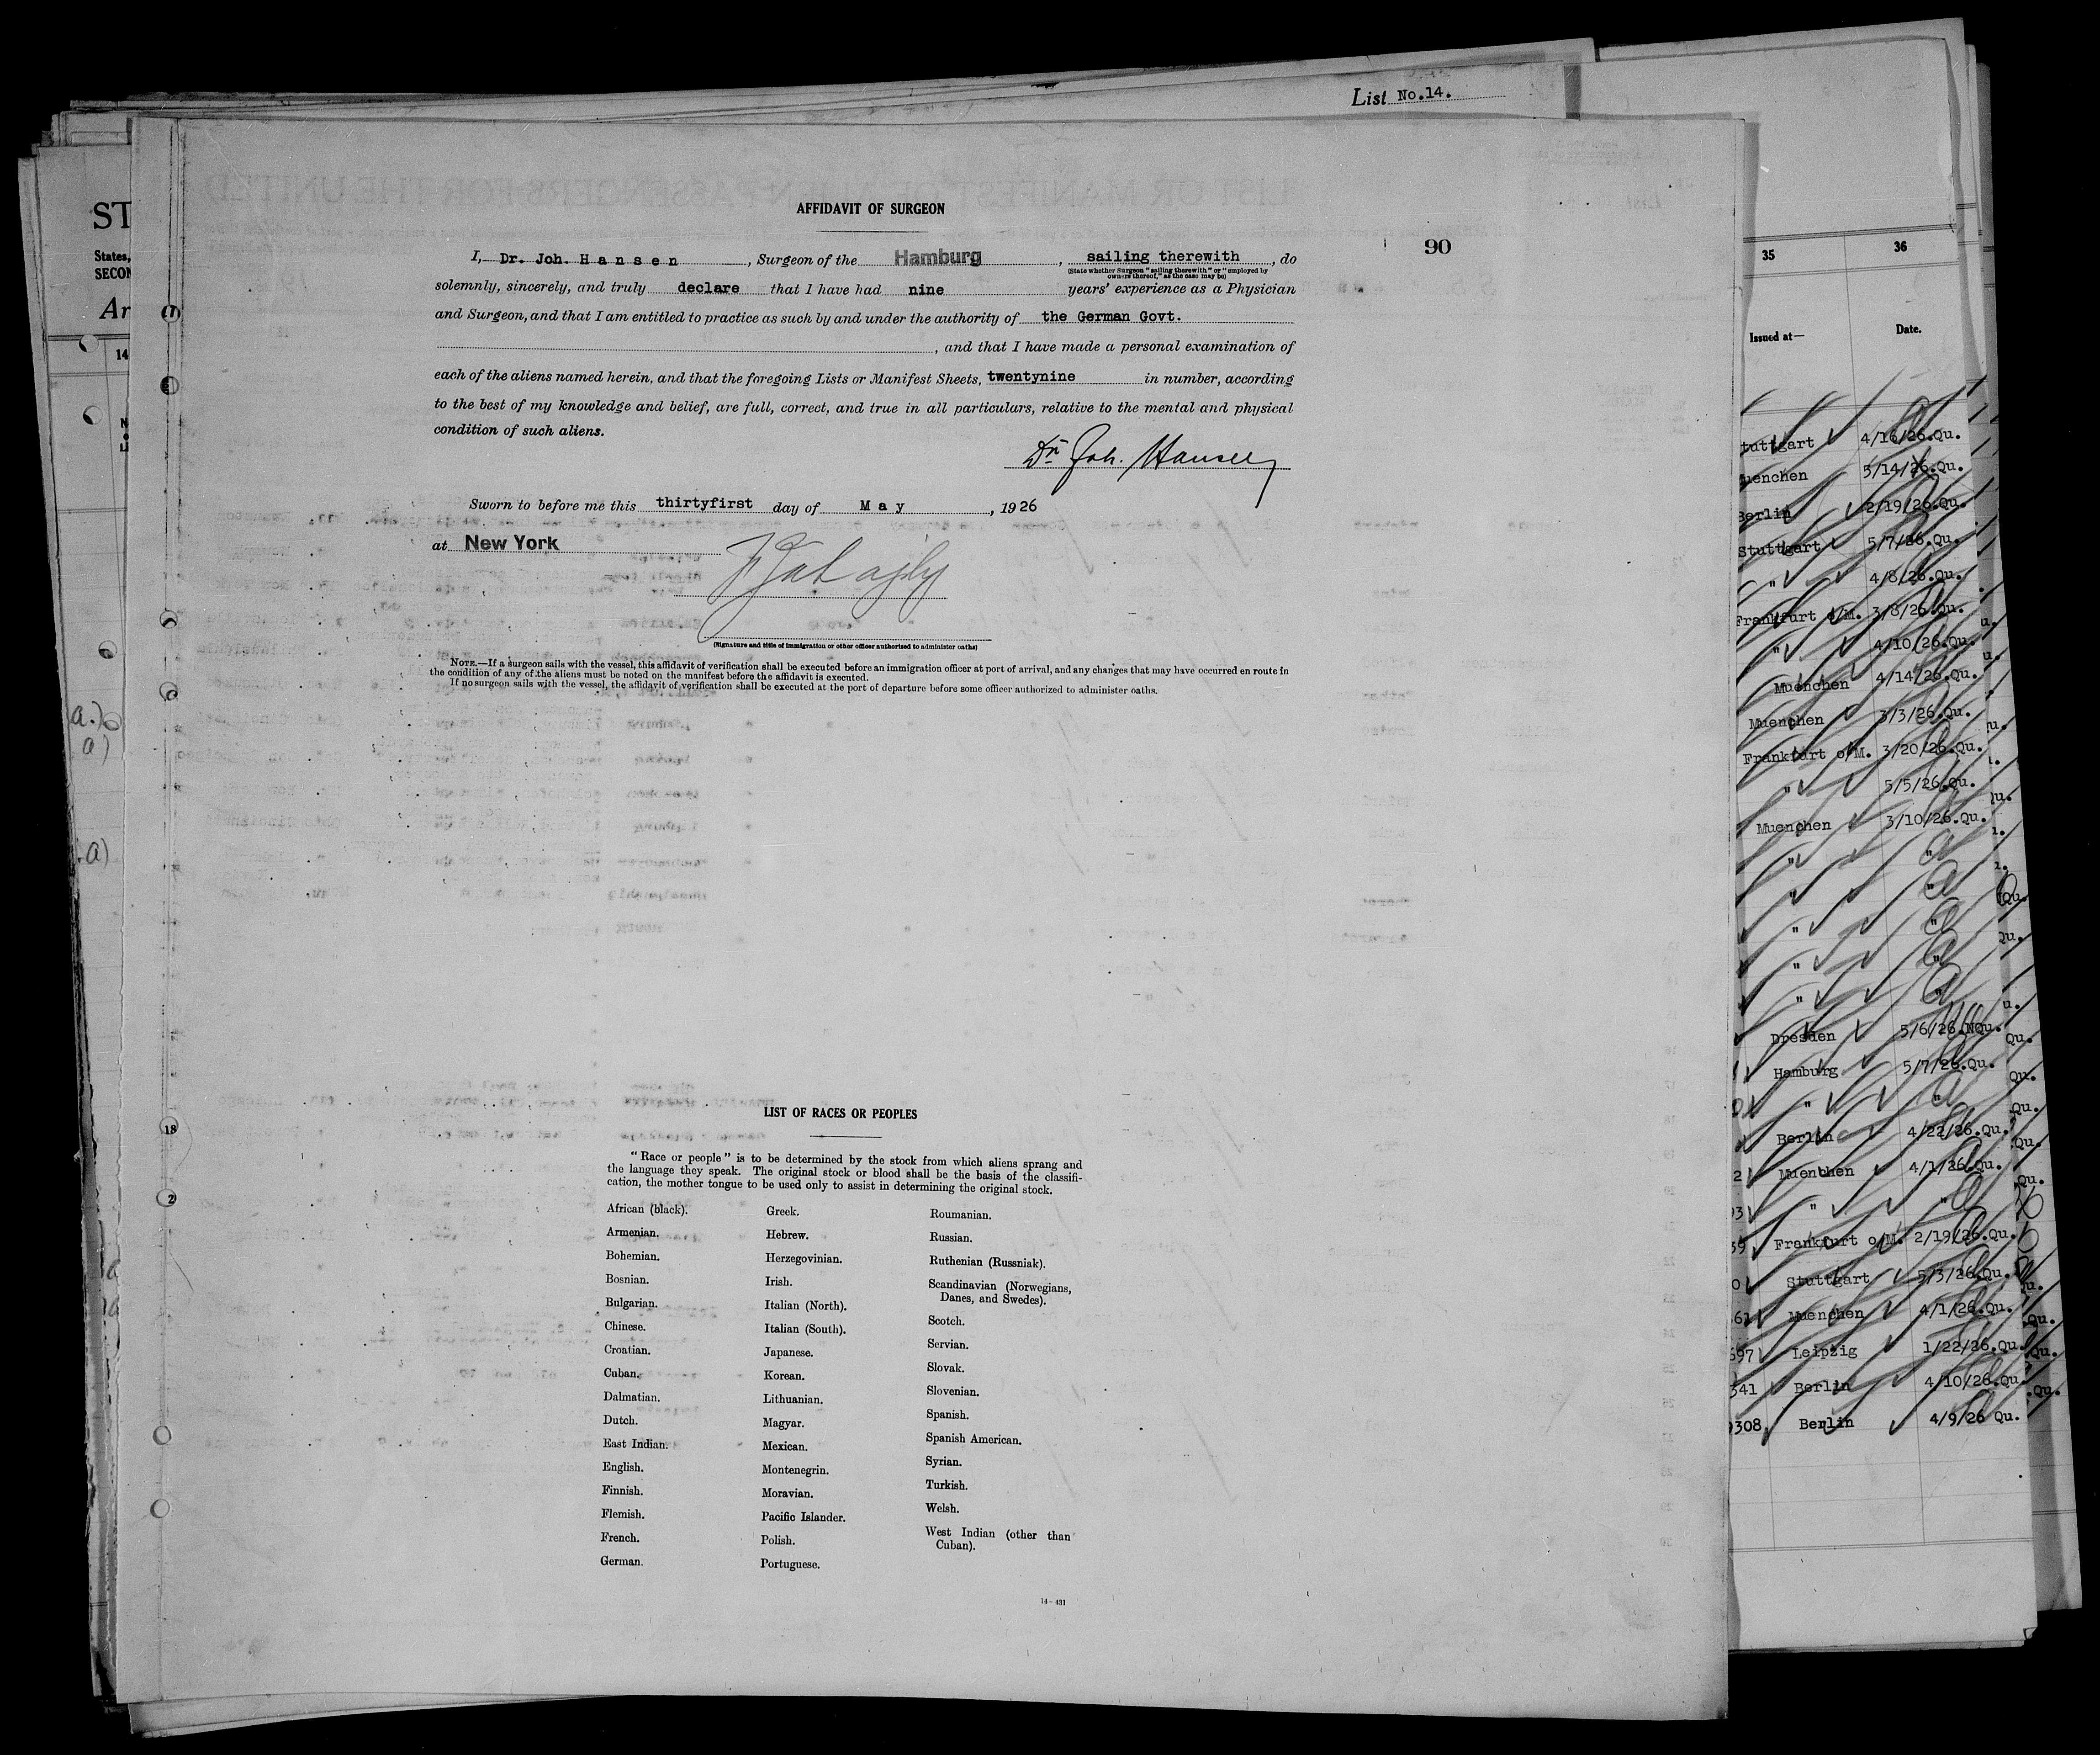 List No.14.
AFFIDAVIT OF SURGEON
90
I, Dr. Joh. Hansen, Surgeon of the Hamburg, sailing therewith, do
(State whether Surgeon "sailing therewith" or "employed by
owners thereof," as the case may be)
solemnly, sincerely, and truly declare that I have had nine years' experience as a Physician
and Surgeon, and that I am entitled to practice as such by and under the authority of the German Govt.
, and that I have made a personal examination of
each of the aliens named herein, and that the foregoing Lists or Manifest Sheets, twentynine in number, according
to the best of my knowledge and belief, are full, correct, and true in all particulars, relative to the mental and physical
condition of such aliens.
Dr. Joh. Hansen
Sworn to before me this thirtyfirst day of May, 1926
at New York
(Signature and title of immigration or other officer authorized to administer oaths)
NOTE.—If a surgeon sails with the vessel, this affidavit of verification shall be executed before an immigration officer at port of arrival, and any changes that may have occurred en route in
the condition of any of the aliens must be noted on the manifest before the affidavit is executed.
If no surgeon sails with the vessel, the affidavit of verification shall be executed at the port of departure before some officer authorized to administer oaths.
LIST OF RACES OR PEOPLES
"Race or people" is to be determined by the stock from which aliens sprang and
the language they speak. The original stock or blood shall be the basis of the classifi-
cation, the mother tongue to be used only to assist in determining the original stock.
African (black).
Armenian.
Bohemian.
Bosnian.
Bulgarian.
Chinese.
Croatian.
Cuban.
Dalmatian.
Dutch.
East Indian.
English.
Finnish.
Flemish.
French.
German.
Greek.
Hebrew.
Herzegovinian.
Irish.
Italian (North).
Italian (South).
Japanese.
Korean.
Lithuanian.
Magyar.
Mexican.
Montenegrin.
Moravian.
Pacific Islander.
Polish.
Portuguese.
Roumanian.
Russian.
Ruthenian (Russniak).
Scandinavian (Norwegians,
Danes, and Swedes).
Scotch.
Servian.
Slovak.
Slovenian.
Spanish.
Spanish American.
Syrian.
Turkish.
Welsh.
West Indian (other than
Cuban).
14-431
ST
States,
SECON
Ar
14
35 36
Issued at— Date.
tuttgart 4/16/26.Qu.
uenchen 5/14/26.Qu.
Berlin 2/19/26.Qu.
Stuttgart 5/7/26.Qu.
" 4/8/26.Qu.
Frankfurt o/M. 3/8/26.Qu.
" 4/10/26.Qu.
Muenchen 4/14/26.Qu.
Muenchen 3/3/26.Qu.
Frankfurt o/M. 3/20/26.Qu.
" 5/5/26.Qu.
Muenchen 3/10/26.Qu.
" "
" "
" "
" "
" "
Dresden 5/6/26.NQu.
Hamburg 5/7/26.Qu.
" "
Berlin 4/22/26.Qu.
2 Muenchen 4/1/26.Qu.
93 " "
59 Frankfurt o/M. 2/19/26.Qu.
0 Stuttgart 5/3/26.Qu.
61 Muenchen 4/1/26.Qu.
597 Leipzig 1/22/26.Qu.
341 Berlin 4/10/26.Qu.
308 Berlin 4/9/26 Qu.